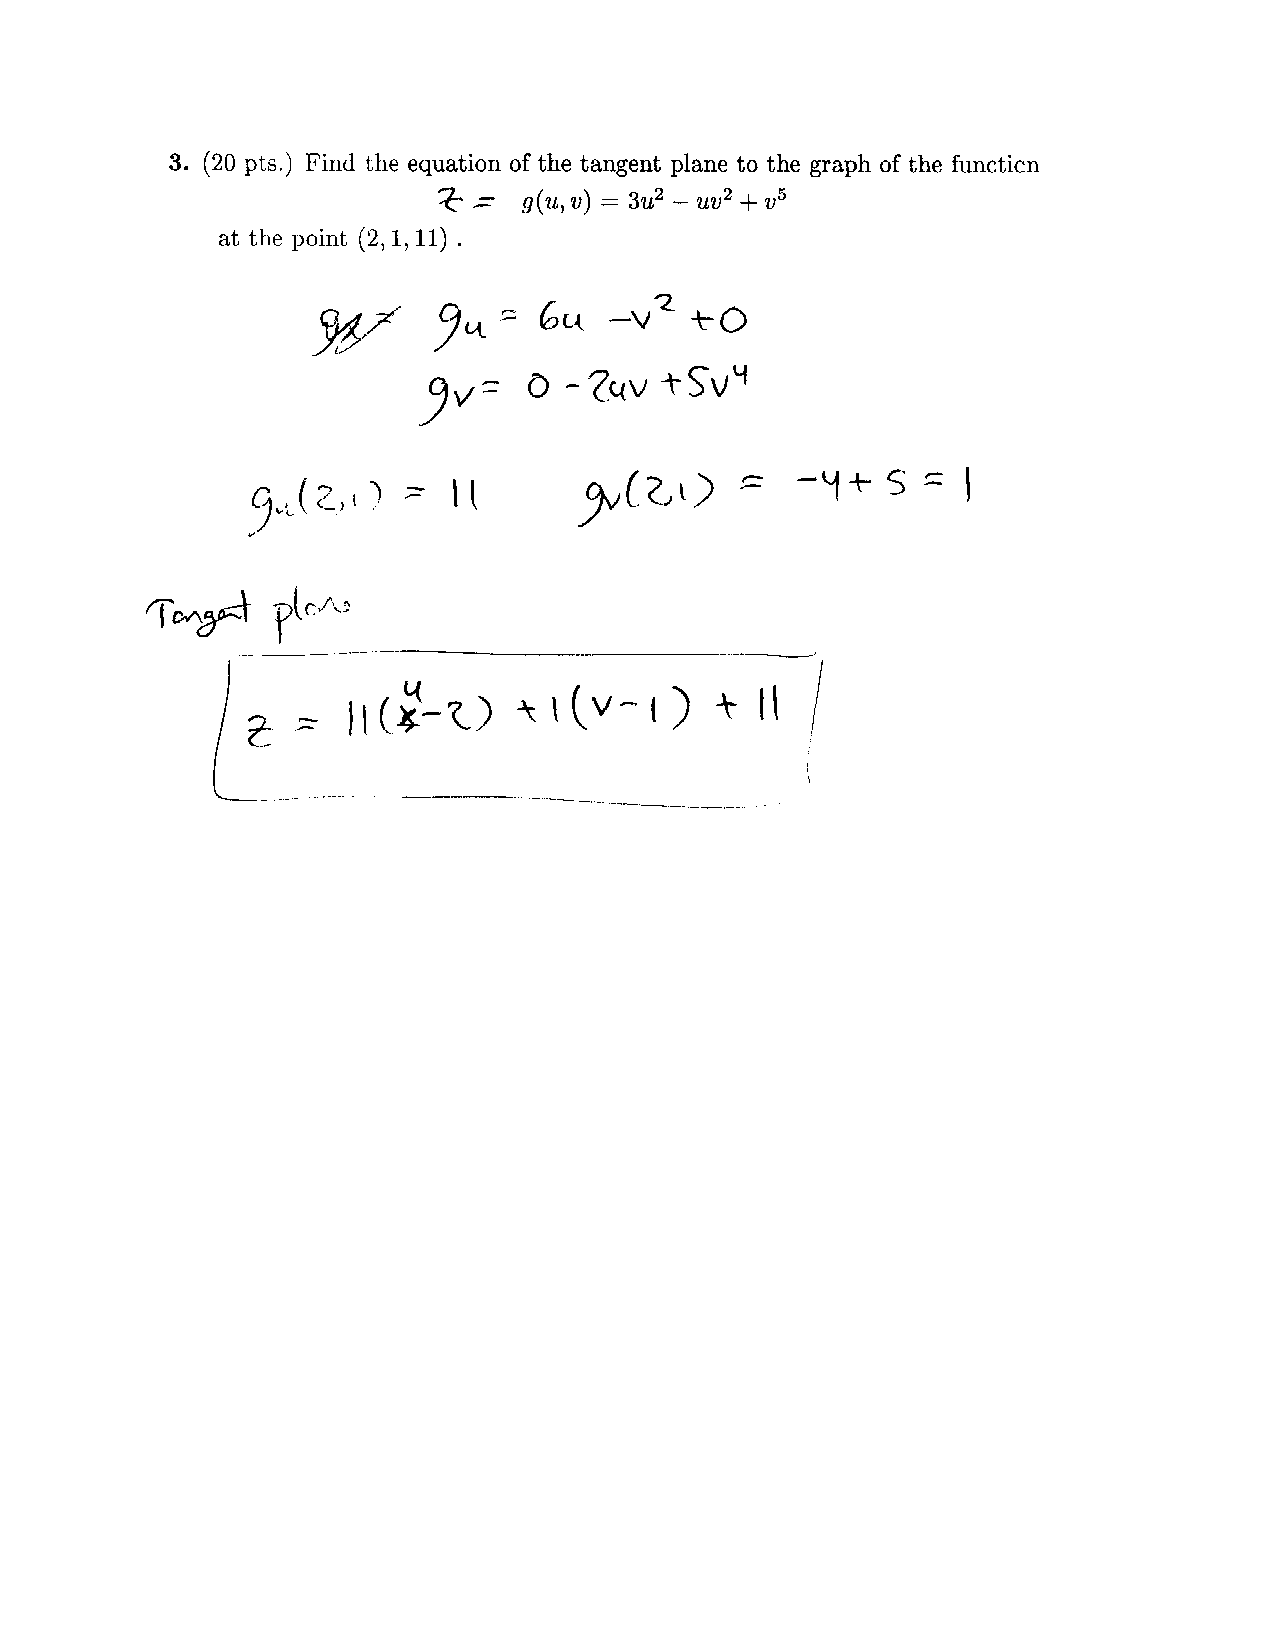 3. (20 pts.) Find the equation of the tangent plane to the graph of the functicn
z = g(u, v) = 3u² − uv² + v⁵
at the point (2, 1, 11) .
gᵤ = 6u − v² + 0
gᵥ = 0 − 2uv + 5v⁴
gᵤ(2,1) = 11 gᵥ(2,1) = −4 + 5 = 1
Tangent plane
z = 11(u−2) + 1(v−1) + 11